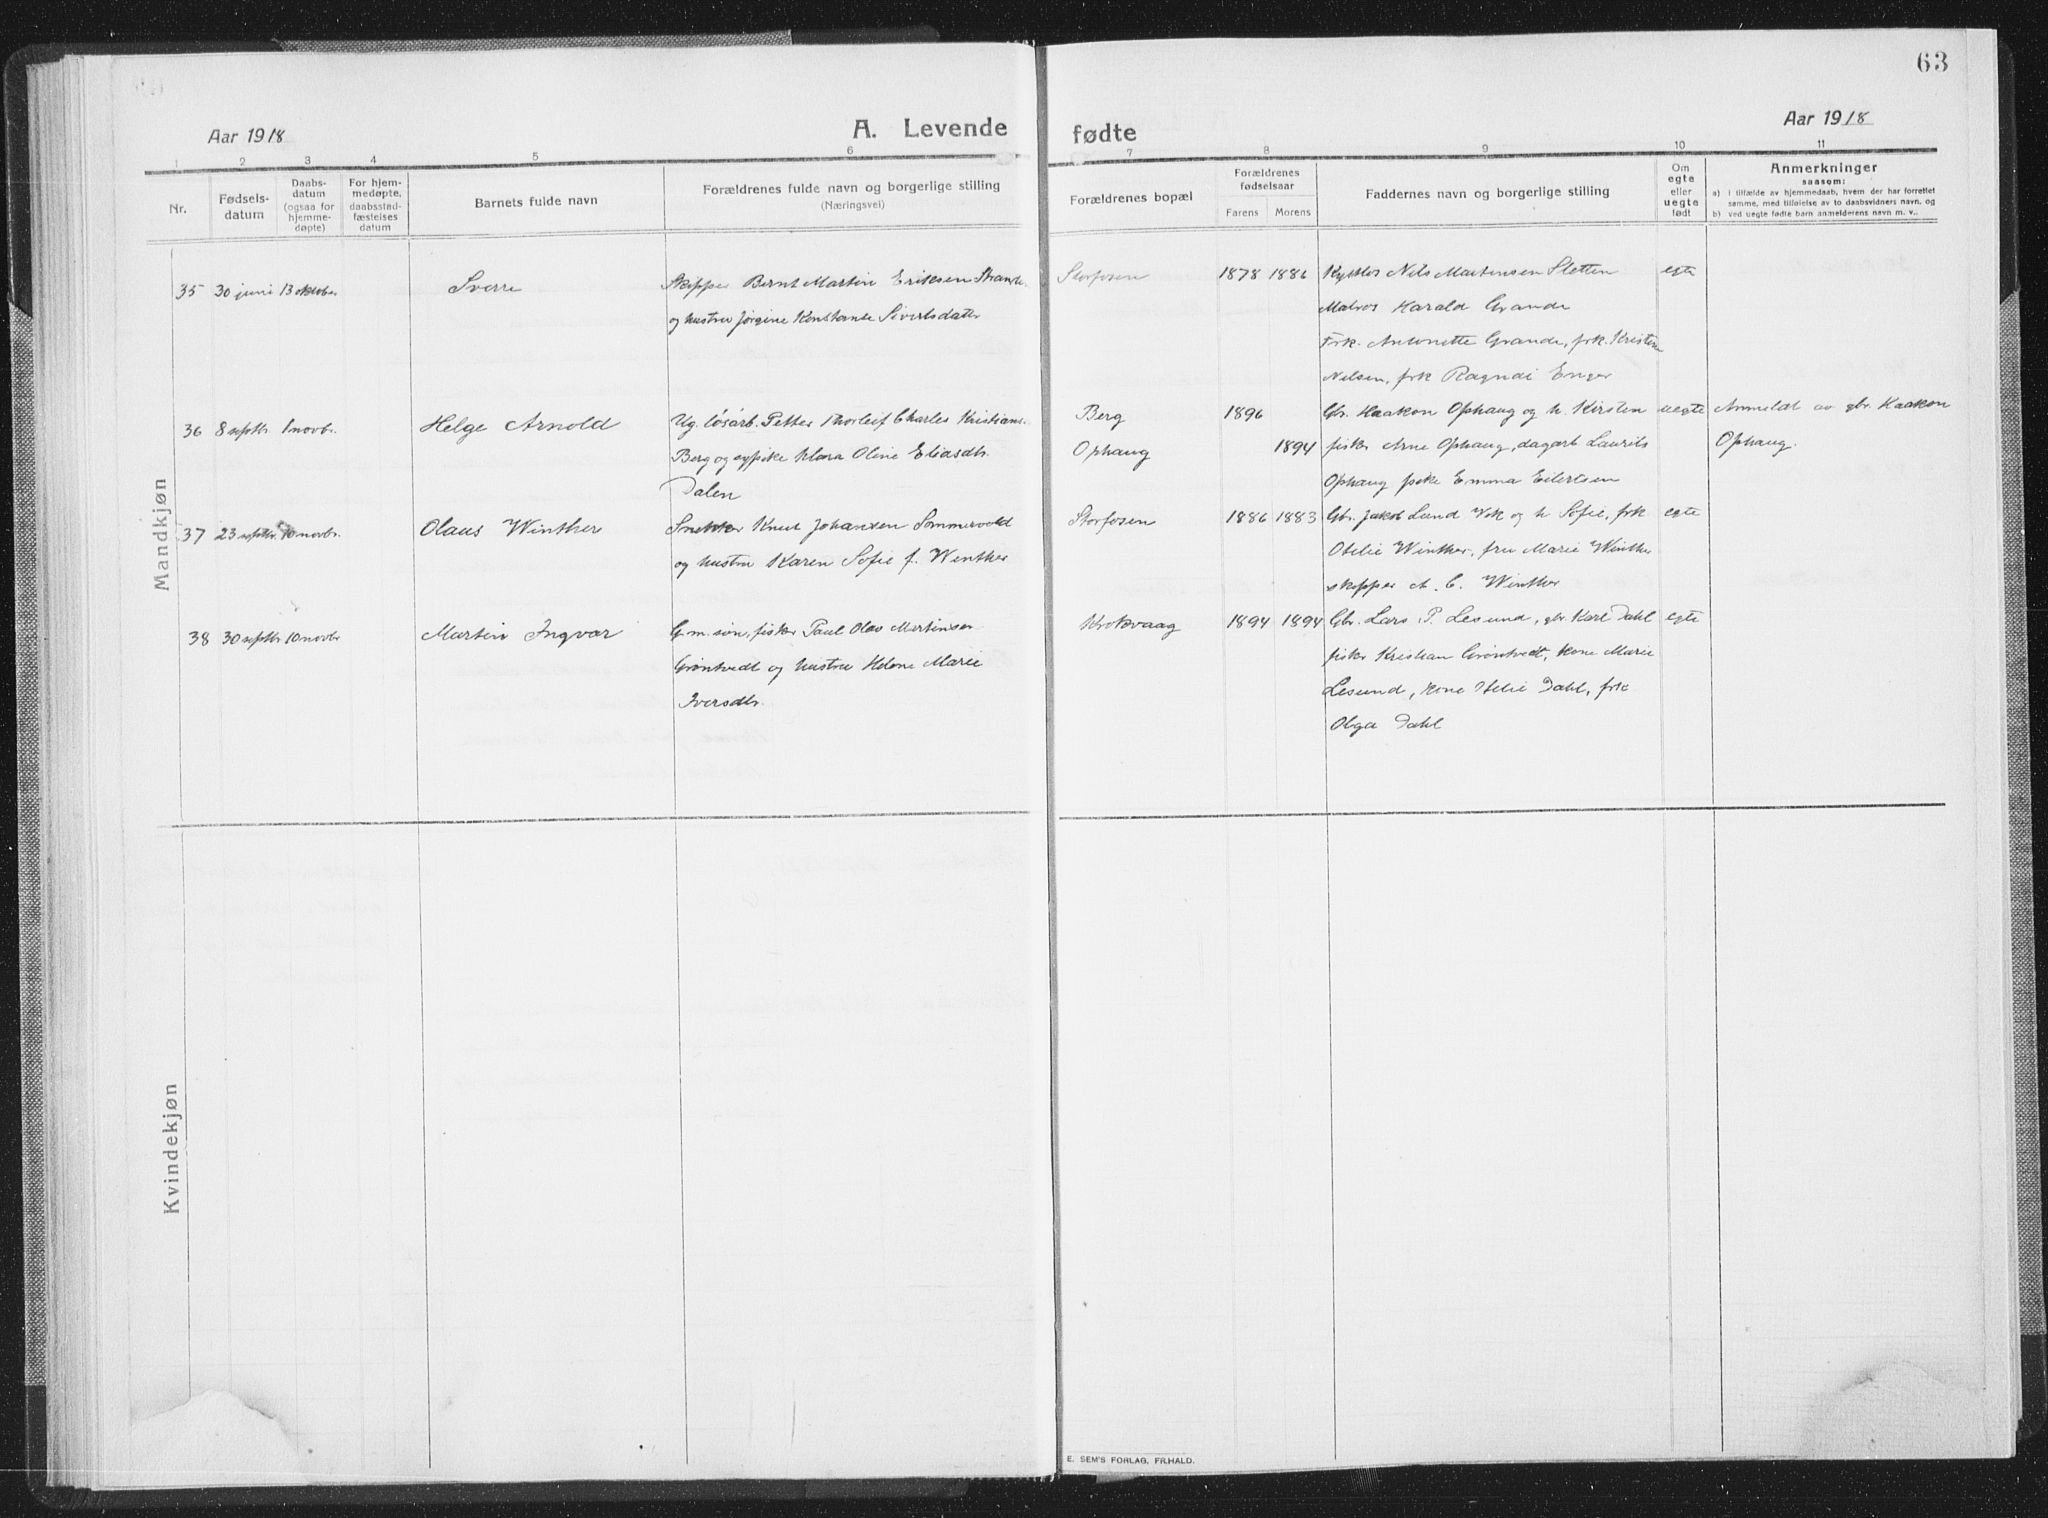 63
Aar 1918
A. Levende fødte
Aar 1918
1 2 3 4 5 6 7 8 9 10 11
Nr.
Fødsels-
datum
Daabs-
datum
(ogsaa for
hjemme-
døpte)
For hjem-
medøpte,
daabsstad-
fæstelses
datum
Barnets fulde navn
Forældrenes fulde navn og borgerlige stilling
(Næringsvei)
Forældrenes bopæl
Forældrenes
fødselsaar
Farens Morens
Faddernes navn og borgerlige stilling
Om
egte
eller
uegte
født
Anmerkninger
saasom:
a) I tilfælde av hjemmedaab, hvem der har forrettet
samme, med tilføielse av to daabsvidners navn, og
b) ved uegte fødte barn anmelderens navn m. v..
Mandkjøn
35 30 juni 13 oktober Sverre Skipper Bernt Martin Eriksen Storfosen 1878 1886 Nils Martensen Sletten egte
og hustru Jørgine Konstanse Sivertsdatter Matros Harald Grande
Frk. Antonette Grande, frk. Kristine
Nilsen, frk Ragndi Enger
36 8 septbr. 1 novbr. Helge Arnold Ug. løsarb. Petter Thorleif Charles Kristians. Berg 1896 Gbr. Haakon Ophaug og h. Kirsten uegte Anmeldt av gbr. Haakon
Berg og pike Klara Oline Eliasdtr. Ophaug 1894 fisker Arne Ophaug, dagarb Laurits Ophaug.
Dalen Ophaug pike Emma Eilertsen
37 23 septbr. 10 novbr. Olaus Winther Snekker Knut Johansen Sommervold Storfosen 1886 1883 Gbr. Jakob Lund og h Sofie, frk egte
og hustru Karen Sofie f. Winther Otelie Winther, fru Marie Winther
skipper A. C. Winther
38 30 septbr 10 novbr Martin Ingvar G.m. søn, fisker Paul Olav Martinsen Krokvaag 1894 1894 Gbr. Lars P. Lesund, gbr. Karl Dahl egte
Grøntvedt og hustru Helene Marie fisker Kristian Grøntvedt, kone Marie
Iversdtr. Lesund, kone Otelie Dahl, frk
Olga Dahl
Kvindekjøn
E. SEM'S FORLAG, FR.HALD.